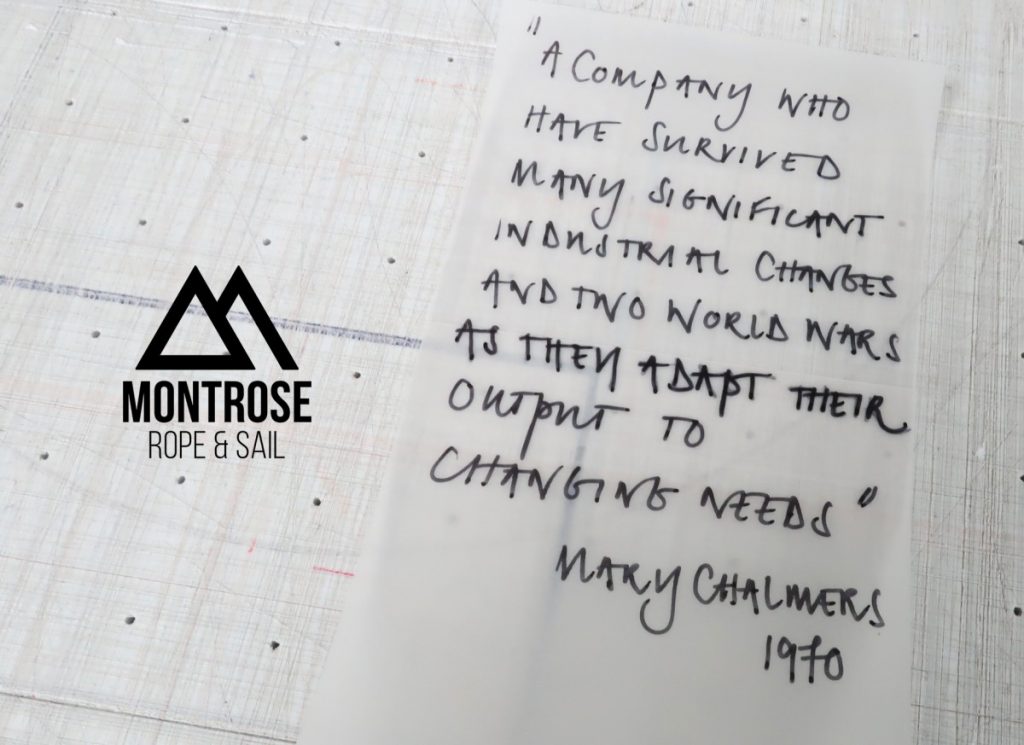 "A COMPANY WHO
HAVE SURVIVED
MANY SIGNIFICANT
INDUSTRIAL CHANGES
AND TWO WORLD WARS
AS THEY ADAPT THEIR
OUTPUT TO
CHANGING NEEDS"
MARY CHALMERS
1970
MONTROSE
ROPE & SAIL